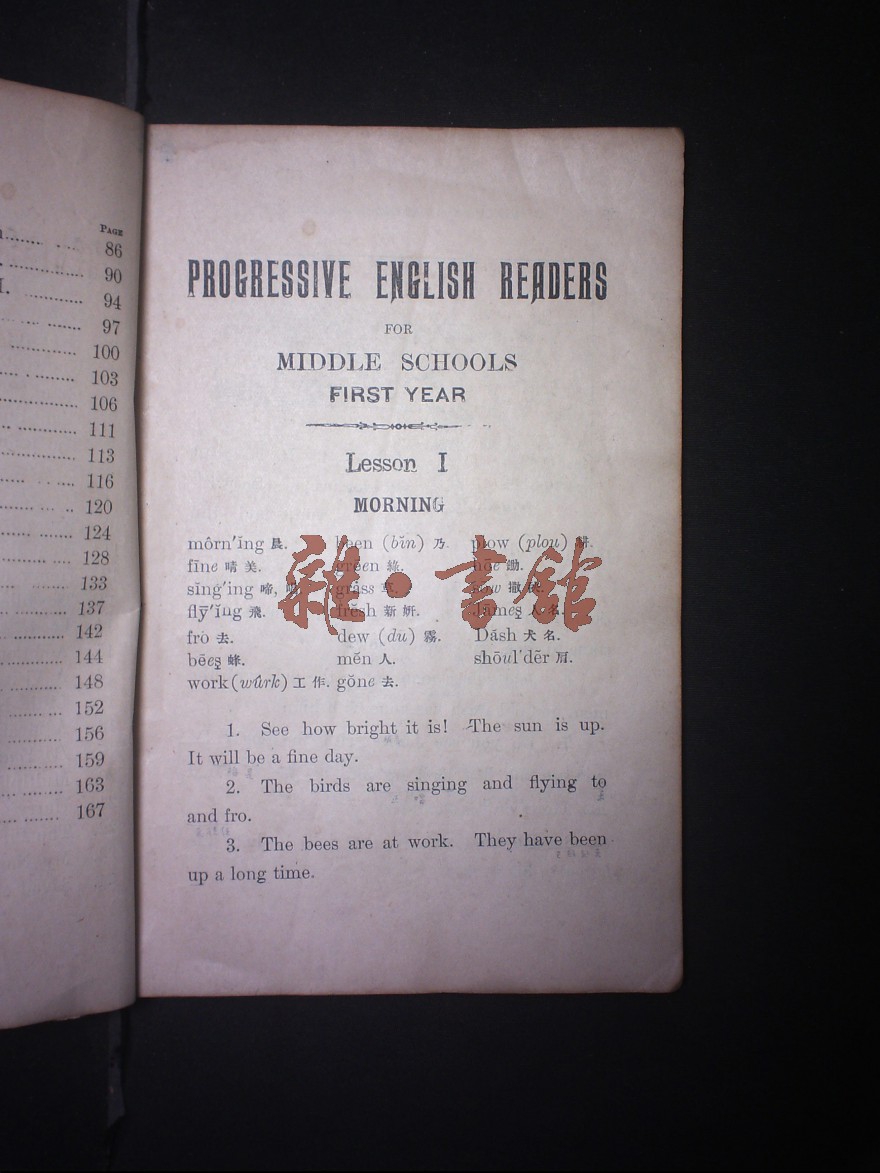 PAGE
86
90
I. 94
97
100
103
106
111
113
116
120
124
128
133
137
142
144
148
152
156
159
163
167
PROGRESSIVE ENGLISH READERS
FOR
MIDDLE SCHOOLS
FIRST YEAR
Lesson I
MORNING
môrn′ĭng 晨. been (bĭn) 乃. plow (plou) 耕.
fīne 晴 美. green 綠. hōe 鋤.
sĭng′ing 啼, grȧss 草. sōw 撒
flȳ′ĭng 飛. frĕsh 新 妍. Jāmes̱ 人 名.
frō 去. dew (du) 霧. Dăsh 犬 名.
bēes̱ 蜂. mĕn 人. shōul′dẽr 肩.
work (wûrk) 工 作. gŏne 去.
1. See how bright it is! The sun is up.
It will be a fine day.
2. The birds are singing and flying to
and fro.
3. The bees are at work. They have been
up a long time.
雜·書館